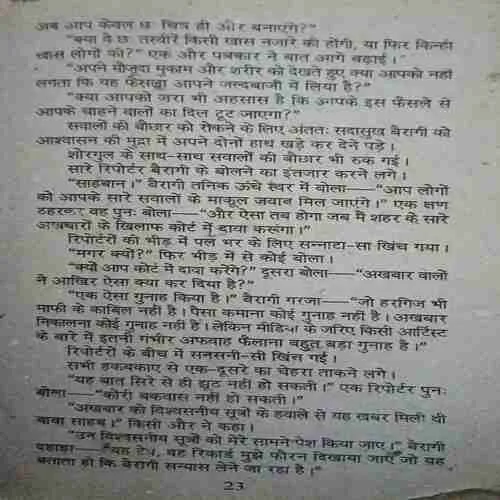 अब आप केवल छः चित्र ही और बनाएंगे?"
"क्या वे छः तस्वीरें किसी खास नजारे की होंगी, या फिर किन्हीं
खास लोगों की?" एक और पत्रकार ने बात आगे बढ़ाई।
"अपने मौजूदा मुकाम और शरीर को देखते हुए क्या आपको नहीं
लगता कि यह फैसला आपने जल्दबाजी में लिया है?"
"क्या आपको जरा भी अहसास है कि आपके इस फैसले से
आपके चाहने वालों का दिल टूट जाएगा?"
सवालों की बौछार को रोकने के लिए अंततः सदासुख बैरागी को
आश्वासन की मुद्रा में अपने दोनों हाथ खड़े कर देने पड़े।
शोरगुल के साथ-साथ सवालों की बौछार भी रुक गई।
सारे रिपोर्टर बैरागी के बोलने का इंतजार करने लगे।
"साहबान।" बैरागी तनिक ऊंचे स्वर में बोला—"आप लोगों
को आपके सारे सवालों के माकूल जवाब मिल जाएंगे।" एक क्षण
ठहरकर वह पुनः बोला—"और ऐसा तब होगा जब मैं शहर के सारे
अखबारों के खिलाफ कोर्ट में दावा करूंगा।"
रिपोर्टरों की भीड़ में पल भर के लिए सन्नाटा-सा खिंच गया।
"मगर क्यों?" फिर भीड़ में से कोई बोला।
"क्यों आप कोर्ट में दावा करेंगे?" दूसरा बोला—"अखबार वालों
ने आखिर ऐसा क्या कर दिया है?"
"एक ऐसा गुनाह किया है।" बैरागी गरजा—"जो हरगिज भी
माफी के काबिल नहीं है। पैसा कमाना कोई गुनाह नहीं है। अखबार
निकालना कोई गुनाह नहीं है। लेकिन मीडिया के जरिए किसी आर्टिस्ट
के बारे में इतनी गंभीर अफवाह फैलाना बहुत बड़ा गुनाह है।"
रिपोर्टरों के बीच में सनसनी-सी खिंच गई।
सभी हकबकाए से एक-दूसरे का चेहरा ताकने लगे।
"यह बात सिरे से ही झूठ नहीं हो सकती।" एक रिपोर्टर पुनः
बोला—"कोरी बकवास नहीं हो सकती।"
"अखबार को विश्वसनीय सूत्रों के हवाले से यह खबर मिली थी
बाबा साहब।" किसी और ने कहा।
"उन विश्वसनीय सूत्रों को मेरे सामने पेश किया जाए।" बैरागी
दहाड़ा—"वह टेप, वह रिकार्ड मुझे फौरन दिखाया जाए जो यह
बताता हो कि बैरागी सन्यास लेने जा रहा है।"
23